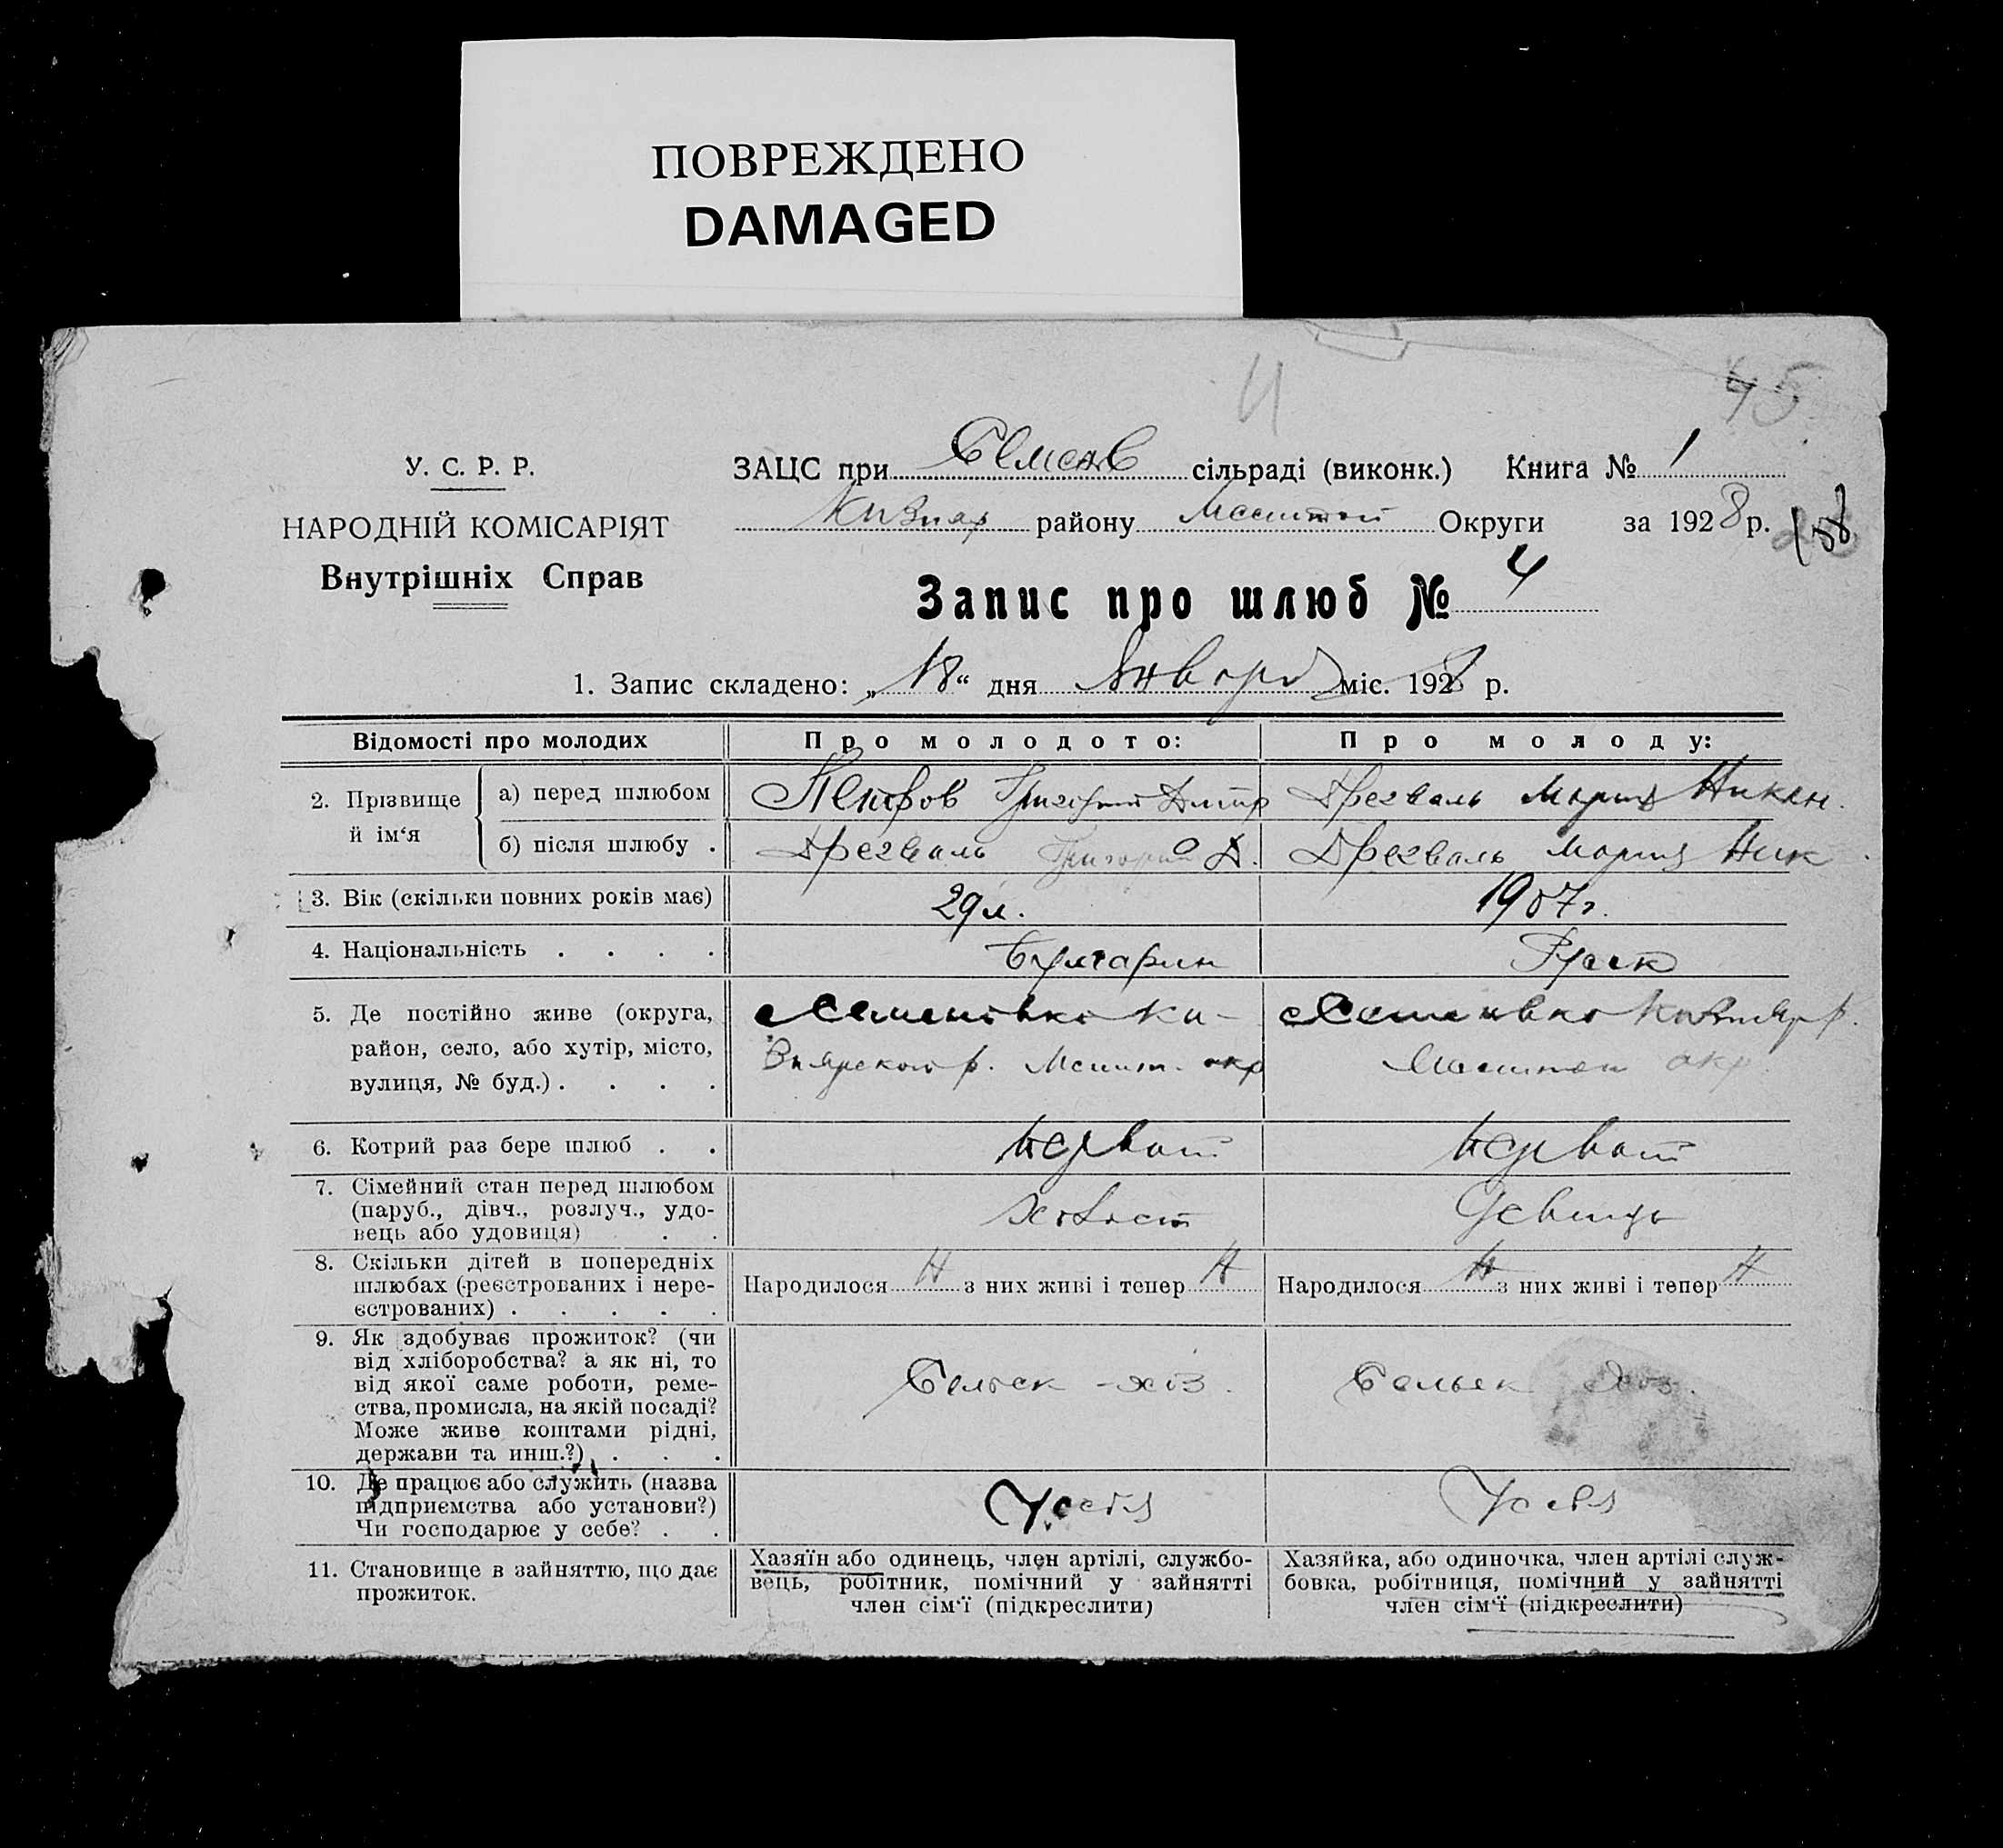 ПОВРЕЖДЕНО
DAMAGED
45
У. С. Р. Р.
НАРОДНІЙ КОМІСАРІЯТ
Внутрішніх Справ
ЗАЦС при Семенов сільраді (виконк.) Книга № 1
району Округи за 1928 р.
Запис про шлюб № 4
1. Запис складено: „18“ дня Января міс. 1928 р.
Відомості про молодих Про молодого: Про молоду:
2. Прізвище й ім‘я
а) перед шлюбом Петров Григорий Дмитр Дрегваль Мария Никан.
б) після шлюбу . Дрегваль Григорий Д. Дрегваль Мария Ник
3. Вік (скільки повних років має) 29 л. 1907 г.
4. Національність . . . . Булгарин Руск
5. Де постійно живе (округа,
район, село, або хутір, місто,
вулиця, № буд.) . . . .
Семеновка Ки-
Мелит. окр
Семеновка
окр
6. Котрий раз бере шлюб . . первый первый
7. Сімейний стан перед шлюбом
(паруб., дівч., розлуч., удо-
вець або удовиця) . .
Холост Девица
8. Скільки дітей в попередніх
шлюбах (реєстрованих і нере-
єстрованих) . . . . .
Народилося Н з них живі і тепер Н Народилося Н з них живі і тепер Н
9. Як здобуває прожиток? (чи
від хліборобства? а як ні, то
від якої саме роботи, реме-
ства, промисла, на якій посаді?
Може живе коштами рідні,
держави та инш.?) . . .
Сельск-хоз. Сельск хоз.
10. Де працює або служить (назва
підприємства або установи?)
Чи господарює у себе? . .
У себя У себя
11. Становище в зайняттю, що дає
прожиток.
Хазяїн або одинець, член артілі, службо-
вець, робітник, помічний у зайнятті
член сім‘ї (підкреслити)
Хазяйка, або одиночка, член артілі служ-
бовка, робітниця, помічний у зайнятті
член сім‘ї (підкреслити)